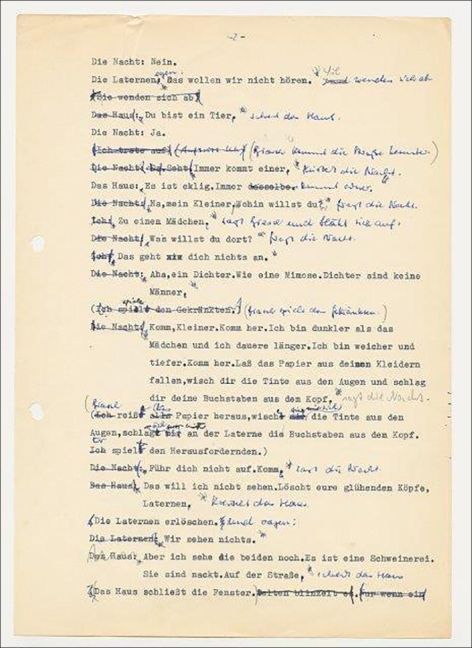 -2-
Die Nacht: Nein.
Die Laternen, sagen: Das wollen wir nicht hören. * und wenden sich ab
(Sie wenden sich ab)
Das Haus: Du bist ein Tier, * schreit das Haus.
Die Nacht: Ja.
(Ich trete auf)
Die Nacht: Da. Seht! Immer kommt einer, * flüstert die Nacht.
Das Haus: Es ist eklig. Immer dasselbe. kommt einer.
Die Nacht: Na, mein Kleiner, wohin willst du? * fragt die Nacht.
Ich: Zu einem Mädchen, * sagt und bläht sich auf.
Die Nacht: Was willst du dort? * fragt die Nacht.
Ich: Das geht dich nichts an. *
Die Nacht: Aha, ein Dichter. Wie eine Mimose. Dichter sind keine
Männer,
(Ich spielt den Gekränkten.) spielt den Gekränkten.)
Die Nacht: Komm, Kleiner. Komm her. Ich bin dunkler als das
Mädchen und ich dauere länger. Ich bin weicher und
tiefer. Komm her. Laß das Papier aus deinen Kleidern
fallen, wisch dir die Tinte aus den Augen und schlag
dir deine Buchstaben aus dem Kopf, * sagt die Nacht.
(Ich reißt Papier heraus, wischt die Tinte aus den
Augen, schlagt an der Laterne die Buchstaben aus dem Kopf.
Ich spielt den Herausfordernden.)
Die Nacht: Führ dich nicht auf. Komm, * sagt die Nacht
Das Haus: Das will ich nicht sehen. Löscht eure glühenden Köpfe,
Laternen, * kreischt das Haus.
(Die Laternen erlöschen.) und sagen:
Die Laternen: Wir sehen nichts. *
Das Haus: Aber ich sehe die beiden noch. Es ist eine Schweinerei.
Sie sind nackt. Auf der Straße, * schreit das Haus
(Das Haus schließt die Fenster. Selten blinzelt es. Nur wenn ein